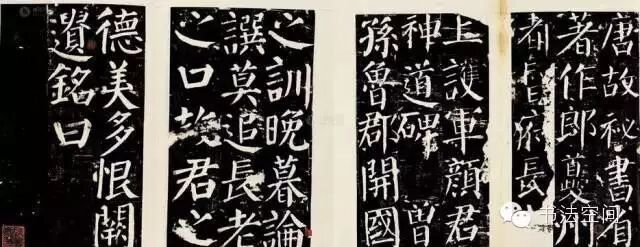 唐故秘書省
著作郎夔州
都督府長
上護軍顏君
神道碑 曾
孫魯郡開國
之訓晚暮論
譔莫追長老
之口故君之
德美多恨闕
遺銘曰
书法空间